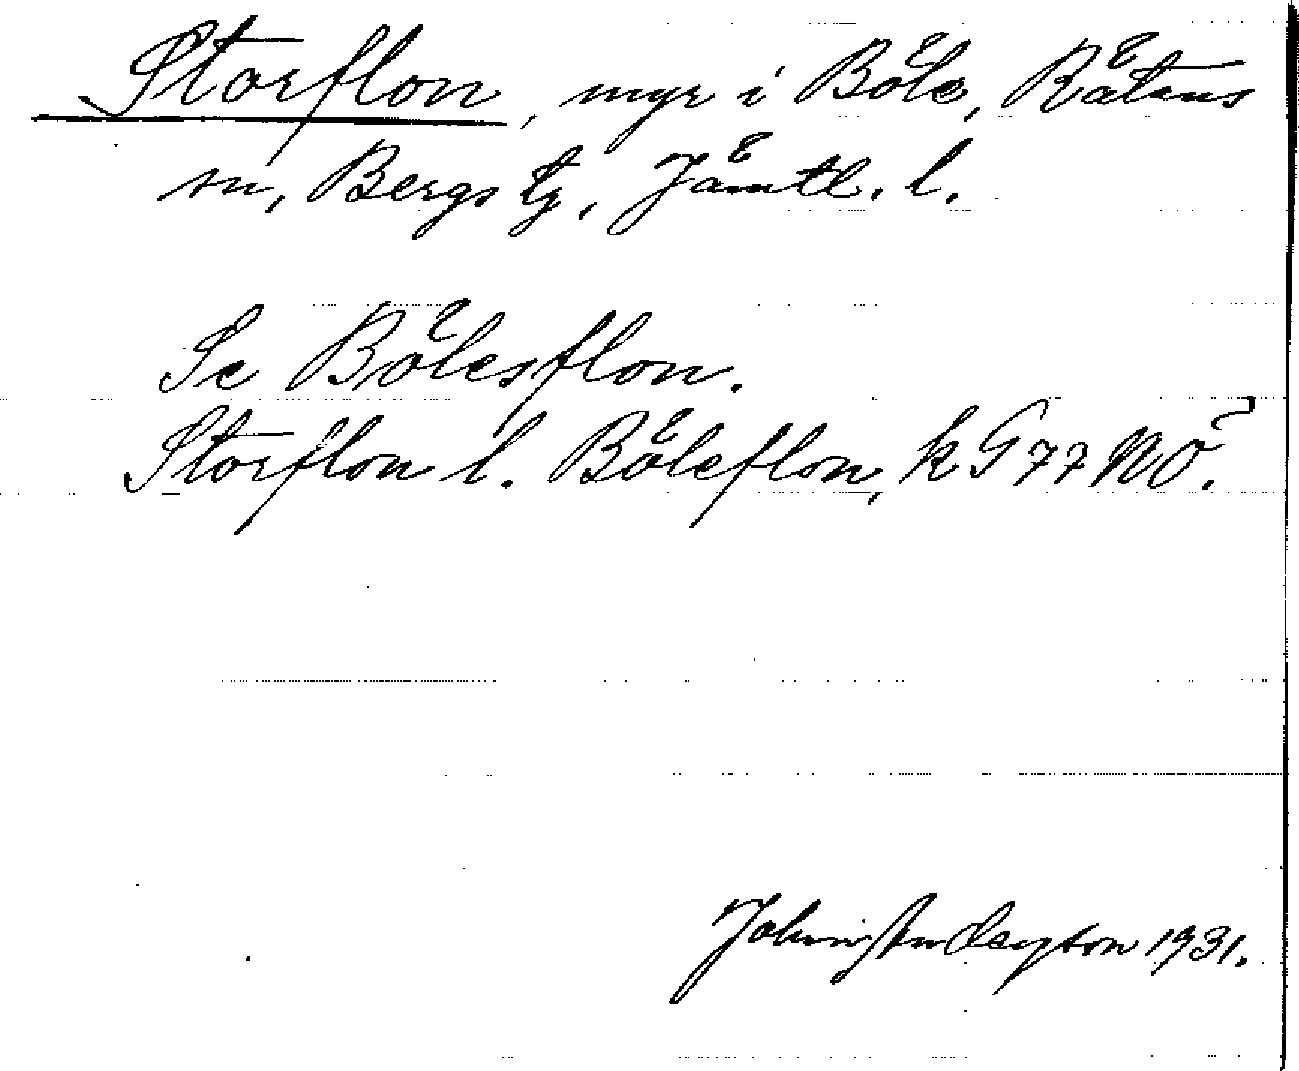 Storflon, myr i Böle, Rätans
sn, Bergs tg, Jämtl. l.
Se Bölesflon.
Storflon l. Böleflon, k G 77 NÖ.
Andersson 1931.